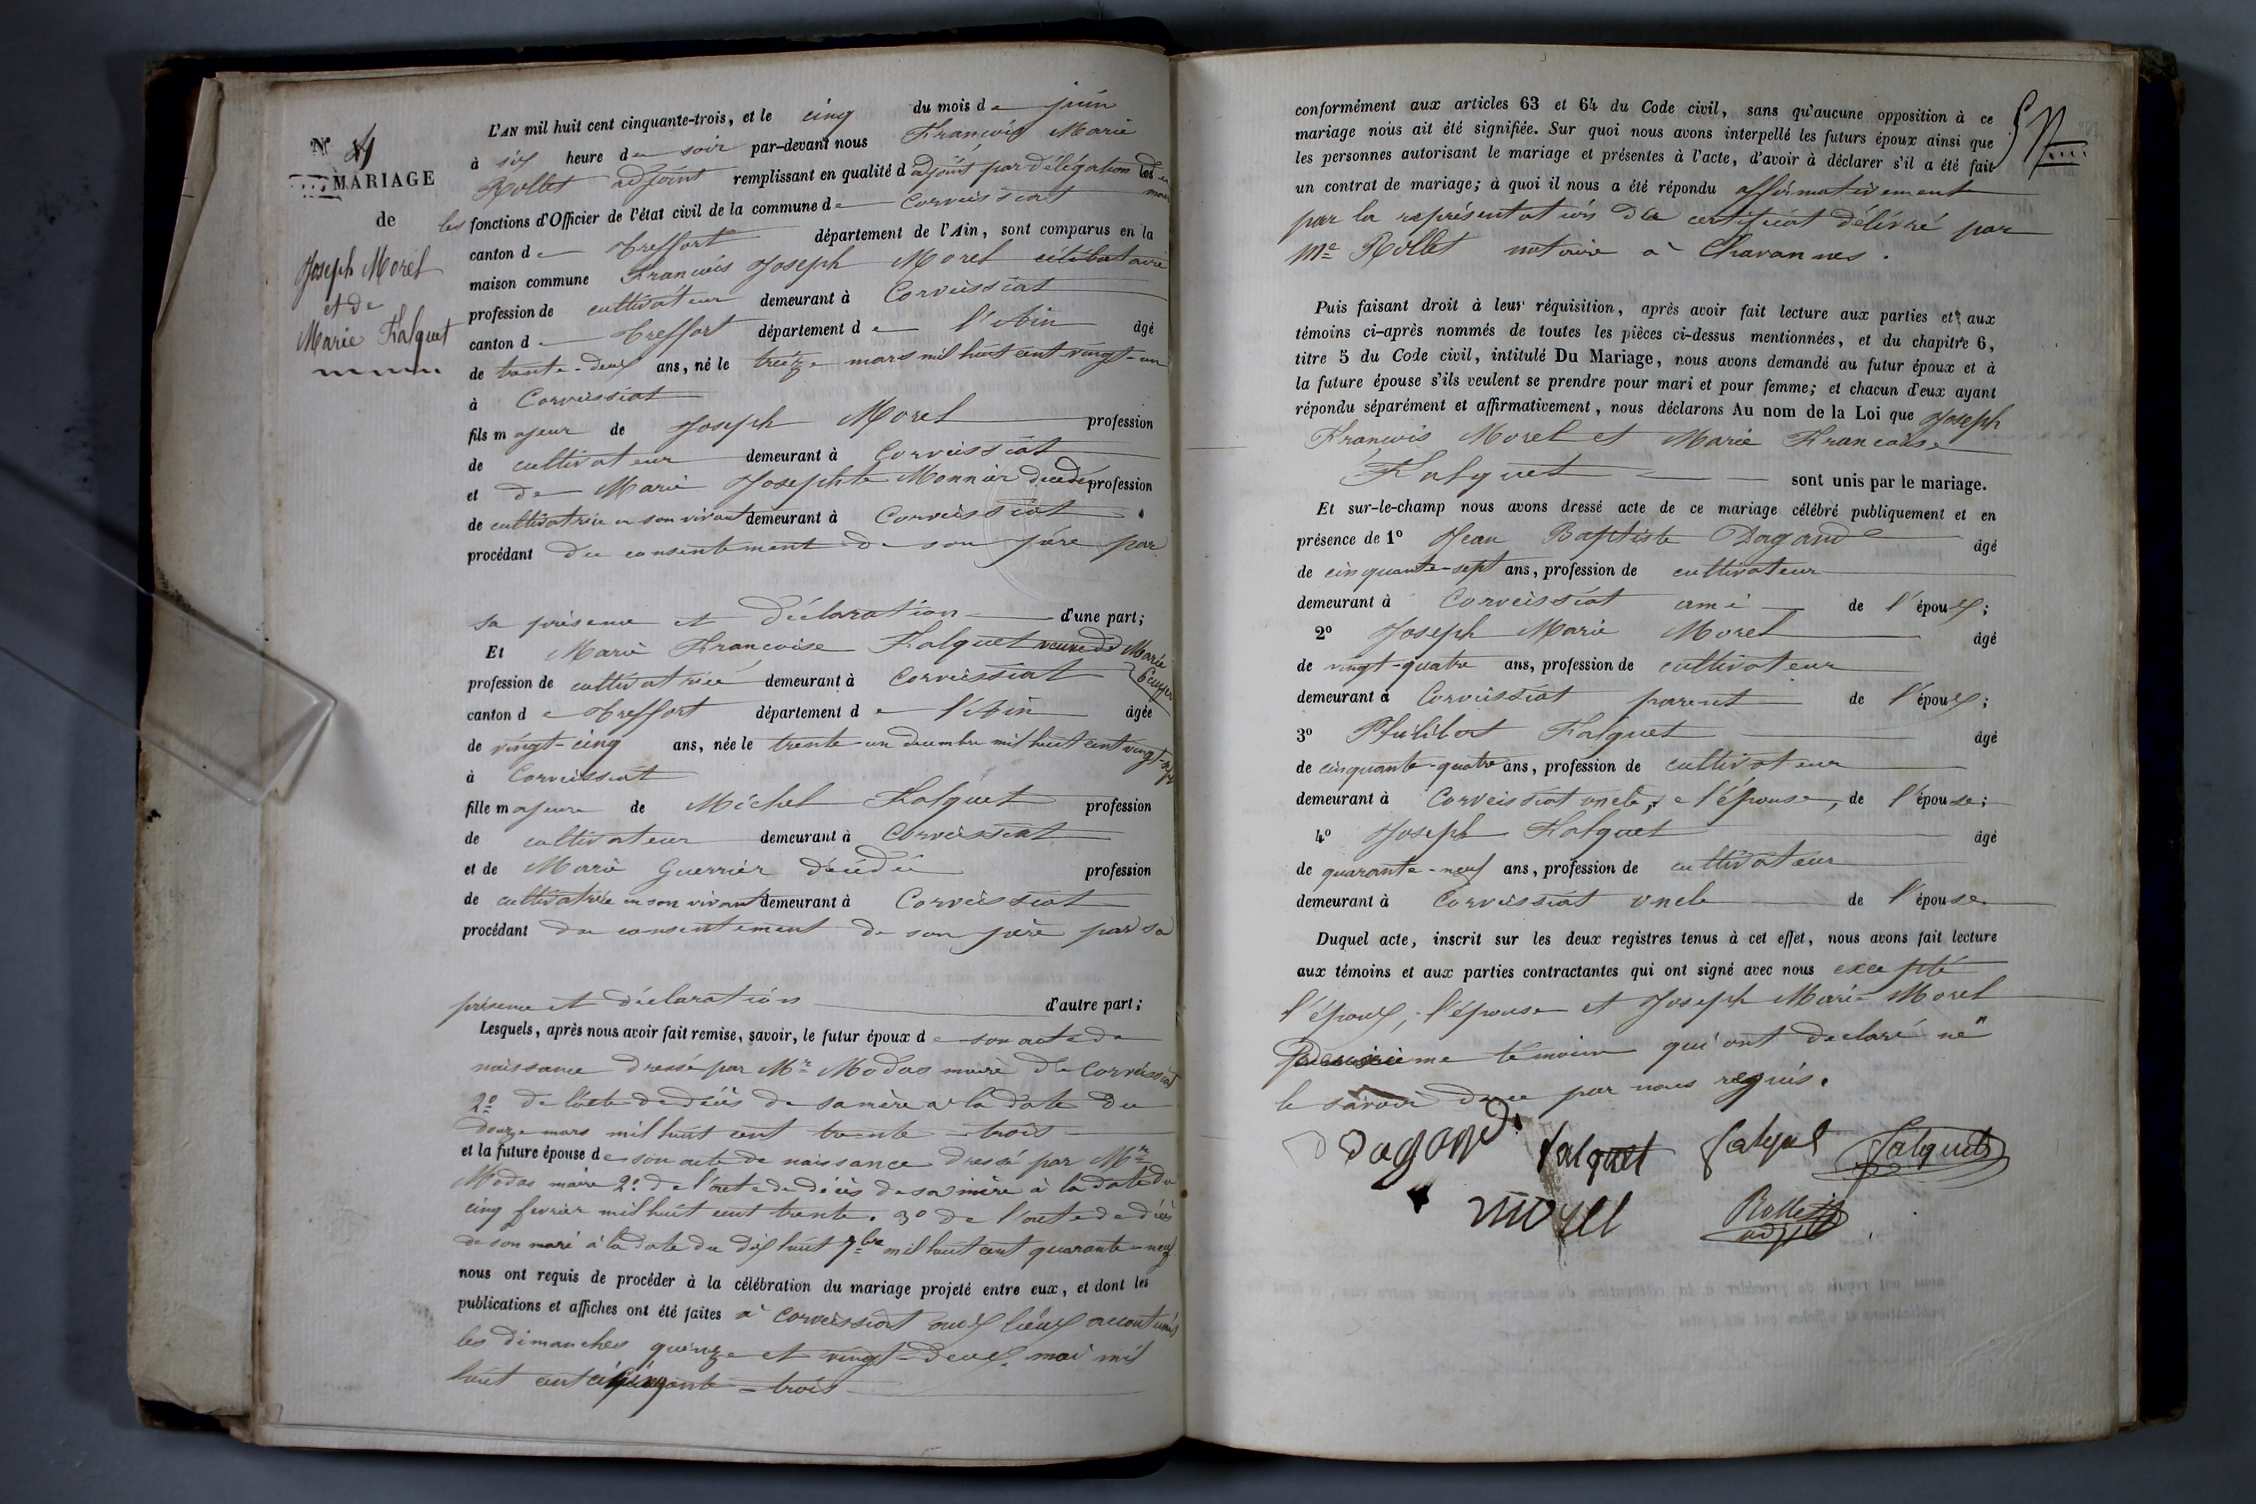 N° 4
MARIAGE
de
Joseph Morel
et de
Marie Falquet
L'AN mil huit cent cinquante-trois, et le cinq du mois de juin
à six heure du soir par-devant nous François Marie
Rollet adjoint remplissant en qualité d'adjoint par délégation
les fonctions d'Officier de l'état civil de la commune de Corveissiat
canton de Treffort département de l'Ain, sont comparus en la
maison commune François Joseph Morel célibataire
profession de cultivateur demeurant à Corveissiat
canton de Treffort département de l'Ain âgé
de trente-deux ans, né le treize mars mil huit cent vingt-un
à Corveissiat
fils majeur de Joseph Morel profession
de cultivateur demeurant à Corveissiat
et de Marie Josephte Monnier décédé profession
de cultivatrice en son vivant demeurant à Corveissiat
procédant du consentement de son père par
sa présence et déclaration d'une part;
Et Marie Francoise Falquet veuve de Marie
profession de cultivatrice demeurant à Corveissiat
canton de Treffort département de l'Ain âgée
de vingt-cinq ans, née le trente un decembre mil huit cent vingt-sept
à Corveissiat
fille majeure de Michel Falquet profession
de cultivateur demeurant à Corveissiat
et de Marie Guerrier décédée profession
de cultivatrice en son vivant demeurant à Corveissiat
procédant du consentement de son père par sa
présence et déclaration d'autre part;
Lesquels, après nous avoir fait remise, savoir, le futur époux de son acte de
naissance dressé par Mr Modas maire de Corveissiat
2° de l'acte de décès de sa mère à la date du
douze mars mil huit cent trente-trois
et la future épouse de son acte de naissance dressé par Mr
Modas maire 2° de l'acte de décès de sa mère à la date du
cinq fevrier mil huit cent trente. 3° de l'acte de décès
de son mari à la date du dix huit 7bre mil huit cent quarante-neuf
nous ont requis de procéder à la célébration du mariage projeté entre eux, et dont les
publications et affiches ont été faites à Corveissiat aux lieux accoutumés
les dimanches quinze et vingt-deux mai mil
huit cent cinquante-trois
conformément aux articles 63 et 64 du Code civil, sans qu'aucune opposition à ce
mariage nous ait été signifiée. Sur quoi nous avons interpellé les futurs époux ainsi que
les personnes autorisant le mariage et présentes à l'acte, d'avoir à déclarer s'il a été fait
un contrat de mariage; à quoi il nous a été répondu affirmativement
par la représentation du certificat délivré par
Me Rollet notaire à Chavannes.
Puis faisant droit à leur réquisition, après avoir fait lecture aux parties et aux
témoins ci-après nommés de toutes les pièces ci-dessus mentionnées, et du chapitre 6,
titre 5 du Code civil, intitulé Du Mariage, nous avons demandé au futur époux et à
la future épouse s'ils veulent se prendre pour mari et pour femme; et chacun d'eux ayant
répondu séparément et affirmativement, nous déclarons Au nom de la Loi que Joseph
François Morel et Marie Francoise
Falquet sont unis par le mariage.
Et sur-le-champ nous avons dressé acte de ce mariage célébré publiquement et en
présence de 1° Jean Baptiste Dagand âgé
de cinquante-sept ans, profession de cultivateur
demeurant à Corveissiat ami de l'époux;
2° Joseph Marie Morel âgé
de vingt-quatre ans, profession de cultivateur
demeurant à Corveissiat parent de l'époux;
3° Philibert Falquet âgé
de cinquante-quatre ans, profession de cultivateur
demeurant à Corveissiat oncle, de l'épouse, de l'épouse;
4° Joseph Falquet âgé
de quarante-neuf ans, profession de cultivateur
demeurant à Corveissiat oncle de l'épouse
Duquel acte, inscrit sur les deux registres tenus à cet effet, nous avons fait lecture
aux témoins et aux parties contractantes qui ont signé avec nous excepté
l'époux, l'épouse et Joseph Marie Morel
deuxième témoin qui ont declaré ne
le savoir de ce par nous requis.
Dagand. falquet falquet Falquet
morel Rollet
adj